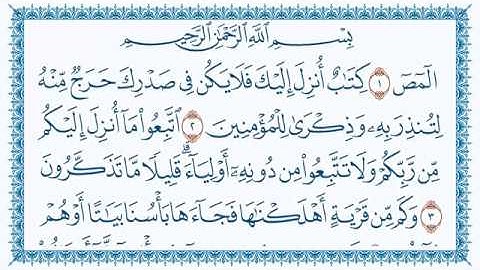 بِسْمِ ٱللَّهِ ٱلرَّحْمَٰنِ ٱلرَّحِيمِ
الٓمٓصٓ ١ كِتَٰبٌ أُنزِلَ إِلَيْكَ فَلَا يَكُن فِى صَدْرِكَ حَرَجٌ مِّنْهُ
لِتُنذِرَ بِهِۦ وَذِكْرَىٰ لِلْمُؤْمِنِينَ ٢ ٱتَّبِعُوا۟ مَآ أُنزِلَ إِلَيْكُم
مِّن رَّبِّكُمْ وَلَا تَتَّبِعُوا۟ مِن دُونِهِۦٓ أَوْلِيَآءَ ۗ قَلِيلًا مَّا تَذَكَّرُونَ
٣ وَكَم مِّن قَرْيَةٍ أَهْلَكْنَٰهَا فَجَآءَهَا بَأْسُنَا بَيَٰتًا أَوْ هُمْ